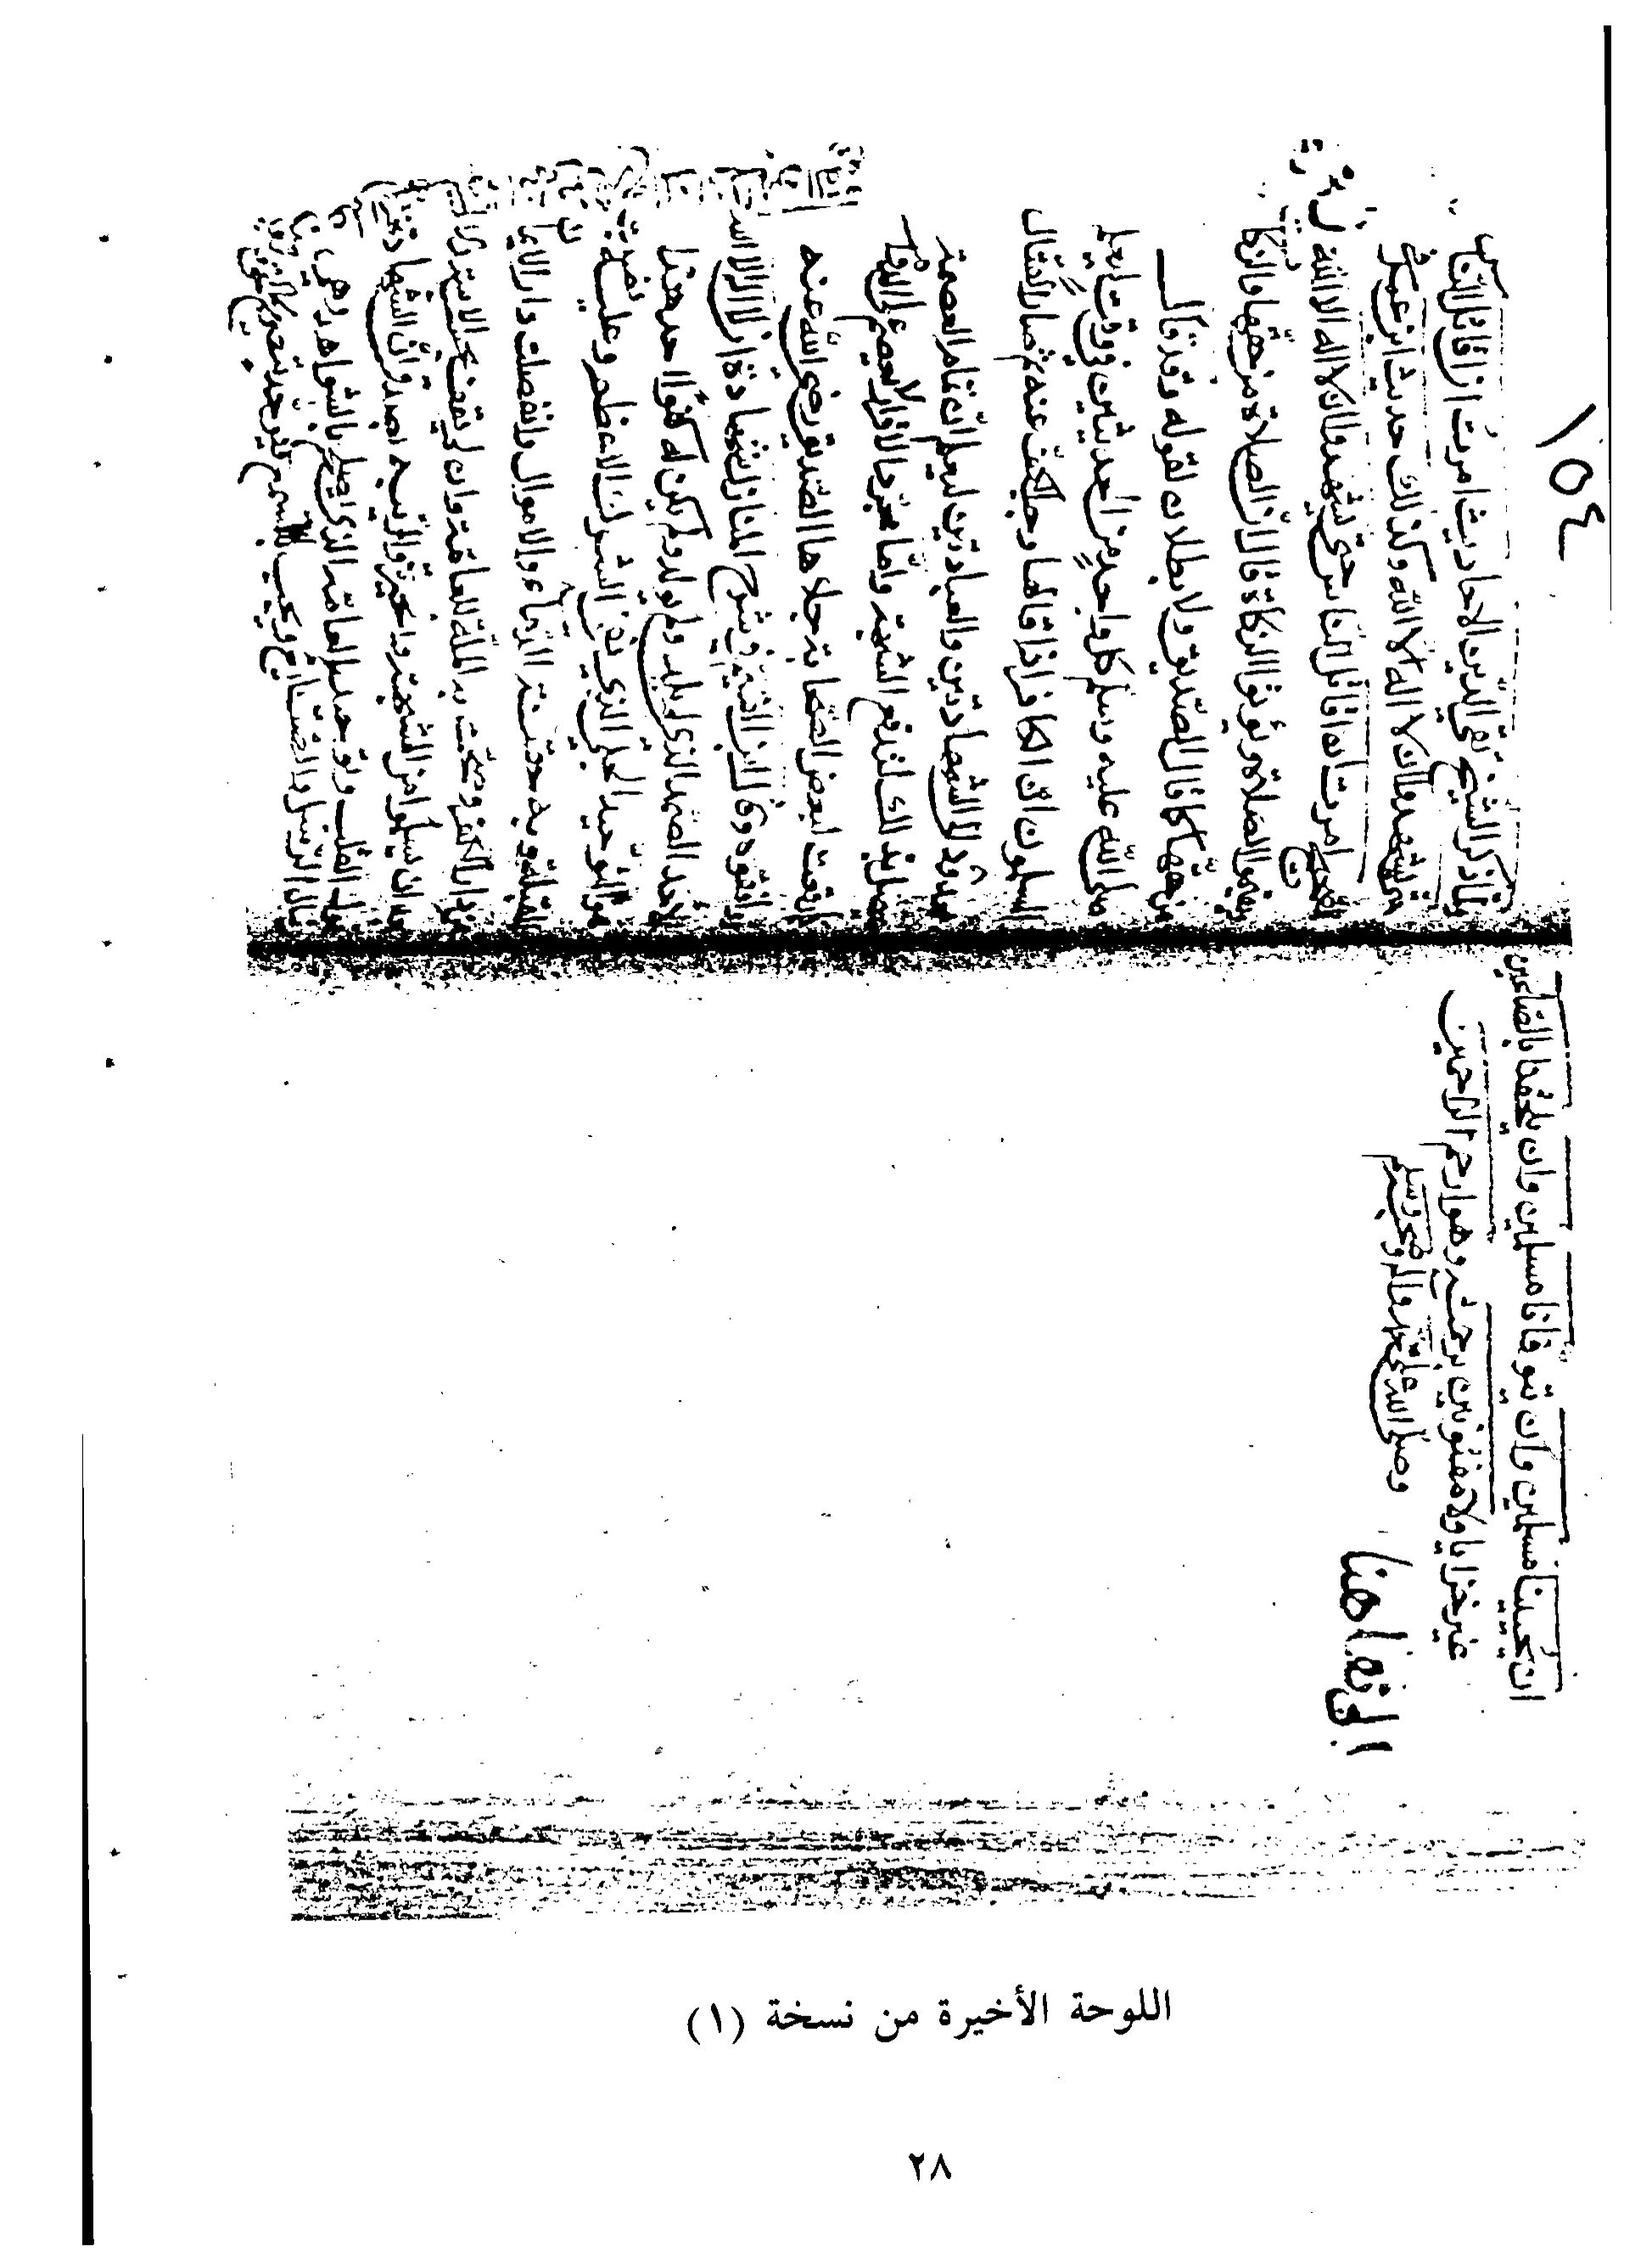 ١٥٤
ان يحيينا مسلمين وان يتوفانا مسلمين وان يلحقنا بالصالحين
غير خزايا ولا مفتونين برحمته وهو ارحم الراحمين
وصلى الله على محمد واله وصحبه وسلم
الى هنا
ذكر الشيخ تقي الدين الاحاديث امرت ان اقاتل الناس
حتى يشهدوا ان لا اله الا الله وكذلك حديث ابن عمر في
الصحيح امرت ان اقاتل الناس حتى يشهدوا ان لا اله الا الله
يقيموا الصلاة ويؤتوا الزكاة قال ان الصلاة من حقها والزكاة
من حقها كما قال الصديق ولا بطلان لقوله وقد قال
صلى الله عليه وسلم كل واحد من الحديثين في وقت ليعلم
المسلمون ان الكافر اذا قالها وجب الكف عنه ثم صار القتال
الى الشهادتين والعبادتين ليعلم ان تمام العصمة
يحصل بذلك لتندفع الشبهة واما مجرد الاقرار لا يعصم على الدوام
وقعت لبعض الصحابة جلاها الصديق رضي الله عنه
وقال ابن القيم في شرح المنازل شهادة ان لا اله الا الله
الاحد الصمد الذي لم يلد ولم يولد ولم يكن له كفوا احد هذا
هو التوحيد الجلي الذي نفى الشرك الاعظم وعليه نصبت
القبلة وبه حقنت الدماء والاموال وانفصلت دار الايمان
من دار الكفر وصحت به الملة للعامة وان لم
بعد ان سلموا من الشبهة والحيرة والريبة بصدق شهادة
القلب وتوحيد العامة الذي يصح بالشواهد وهي
الرسل والصنايع ويجب بالسمع
اللوحة الأخيرة من نسخة (١)
٢٨